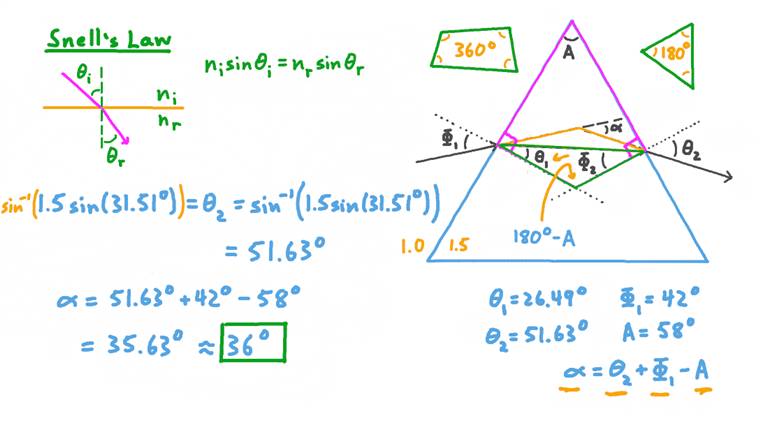 Snell's Law
nᵢ sinθᵢ = nᵣ sinθᵣ
θᵢ
nᵢ
nᵣ
θᵣ
360°
A
180°
α
Φ₁
θ₁
Φ₂
θ₂
180°-A
1.0 1.5
sin⁻¹(1.5 sin(31.51°)) = θ₂ = sin⁻¹(1.5 sin(31.51°))
= 51.63°
α = 51.63° + 42° - 58°
= 35.63° ≈ 36°
θ₁ = 26.49° Φ₁ = 42°
θ₂ = 51.63° A = 58°
α = θ₂ + Φ₁ - A